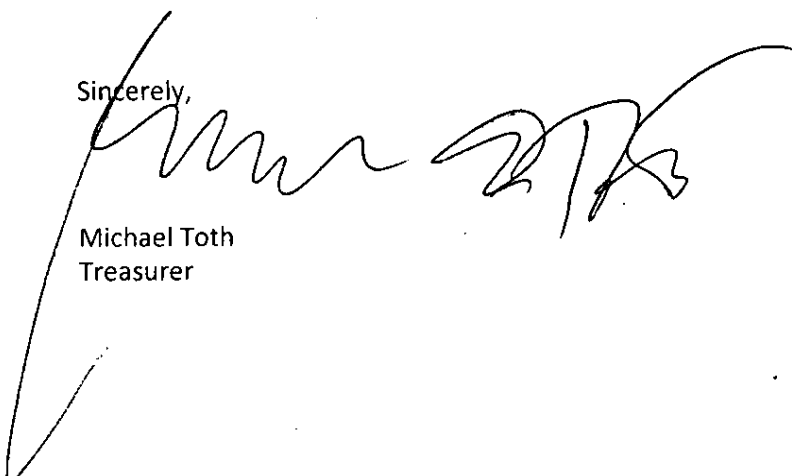 Sincerely,
Michael Toth
Treasurer